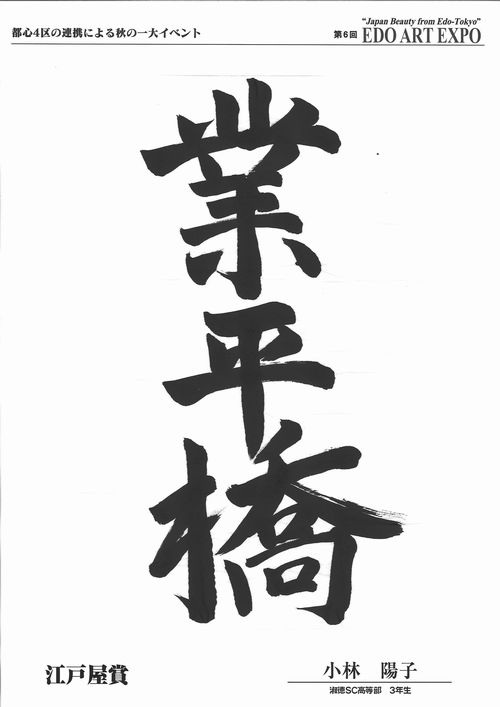 都心4区の連携による秋の一大イベント
"Japan Beauty from Edo-Tokyo"
第6回 EDO ART EXPO
業平橋
江戸屋賞
小林 陽子
淑徳SC高等部 3年生